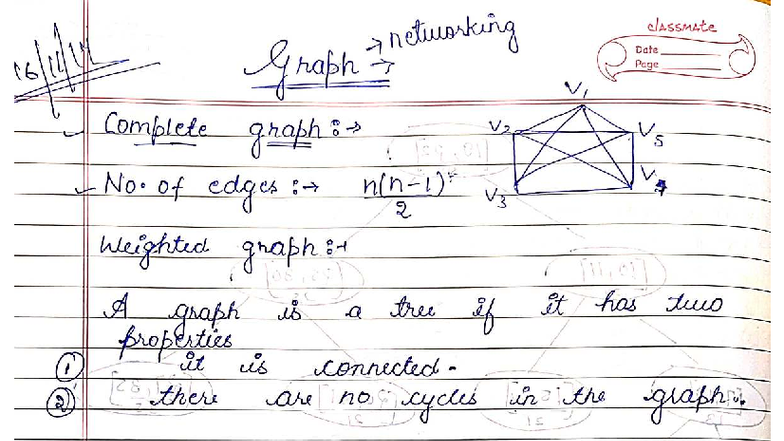 classmate
Date
Page
16/11/14
Graph → networking
Complete graph :→
V1
V2
V5
V3
V4
No. of edges :→ n(n-1)/2
Weighted graph :→
A graph is a tree if it has two
properties
① it is connected.
② there are no cycles in the graph.